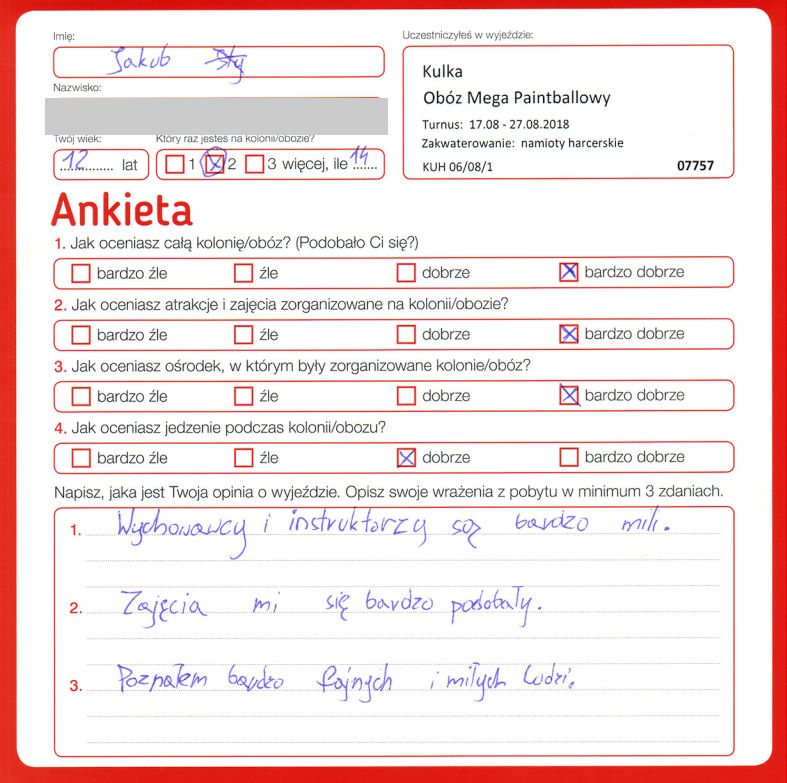 Imię:
Jakub
Uczestniczyłeś w wyjeździe:
Nazwisko:
Kulka
Obóz Mega Paintballowy
Turnus: 17.08 - 27.08.2018
Zakwaterowanie: namioty harcerskie
KUH 06/08/1 07757
Twój wiek:
12 lat
Który raz jesteś na kolonii/obozie?
1 2 3 więcej, ile 14
Ankieta
1. Jak oceniasz całą kolonię/obóz? (Podobało Ci się?)
bardzo źle źle dobrze bardzo dobrze
2. Jak oceniasz atrakcje i zajęcia zorganizowane na kolonii/obozie?
bardzo źle źle dobrze bardzo dobrze
3. Jak oceniasz ośrodek, w którym były zorganizowane kolonie/obóz?
bardzo źle źle dobrze bardzo dobrze
4. Jak oceniasz jedzenie podczas kolonii/obozu?
bardzo źle źle dobrze bardzo dobrze
Napisz, jaka jest Twoja opinia o wyjeździe. Opisz swoje wrażenia z pobytu w minimum 3 zdaniach.
1. Wychowawcy i instruktorzy są bardzo mili.
2. Zajęcia mi się bardzo podobały.
3. Poznałem bardzo fajnych i miłych ludzi.